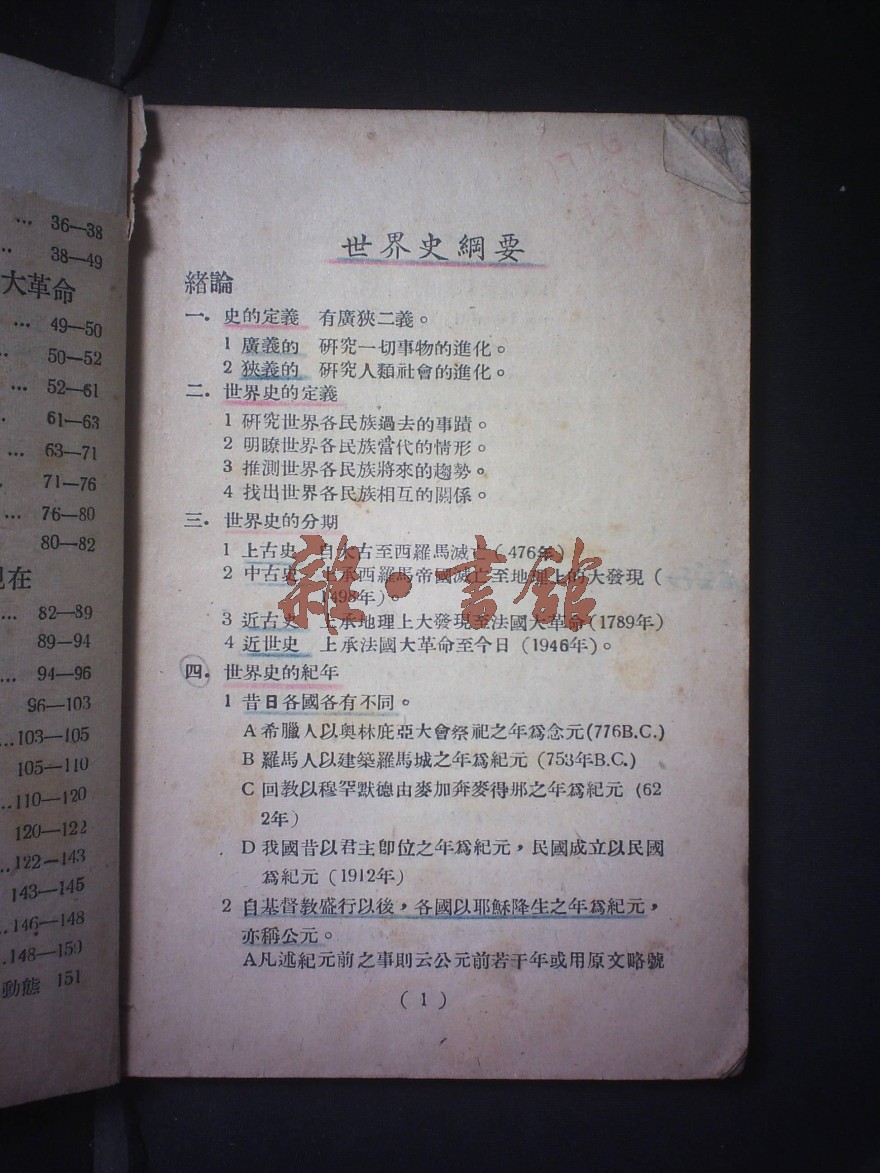 … 36—38
38—49
大革命
49—50
50—52
… 52—61
61—63
… 63—71
71—76
… 76—80
80—82
現在
… 82—89
89—94
… 94—96
96—103
…103—105
105—110
…110—120
120—122
…122—143
143—145
…146—148
…148—150
動態 151
世界史綱要
緒論
一．史的定義 有廣狹二義。
1 廣義的 研究一切事物的進化。
2 狹義的 研究人類社會的進化。
二．世界史的定義
1 研究世界各民族過去的事蹟。
2 明瞭世界各民族當代的情形。
3 推測世界各民族將來的趨勢。
4 找出世界各民族相互的關係。
三．世界史的分期
1 上古史 自永古至西羅馬滅亡（476年）
2 中古史 上承西羅馬帝國滅亡至地理上的大發現（
1498年）。
3 近古史 上承地理上大發現至法國大革命（1789年）
4 近世史 上承法國大革命至今日（1946年）。
四．世界史的紀年
1 昔日各國各有不同。
A 希臘人以奧林庇亞大會祭祀之年爲念元(776B.C.)
B 羅馬人以建築羅馬城之年爲紀元 (753年B.C.)
C 回教以穆罕默德由麥加奔麥得那之年爲紀元（62
2年）
D 我國昔以君主卽位之年爲紀元，民國成立以民國
爲紀元（1912年）
2 自基督教盛行以後，各國以耶穌降生之年爲紀元，
亦稱公元。
A凡述紀元前之事則云公元前若干年或用原文略號
( 1 )
雜·書館